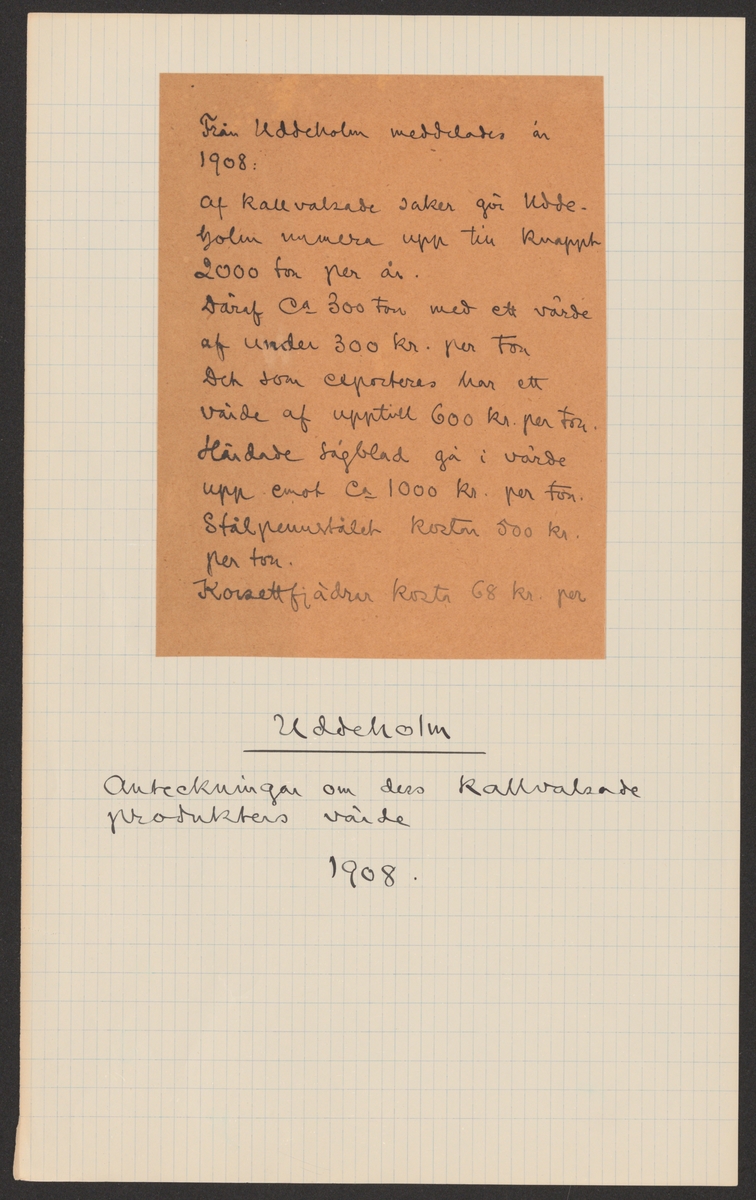 Från Uddeholm meddelades år
1908:
Af kallvalsade saker gör Udde-
holm numera upp till knappt
2000 ton per år.
Däraf Ca 300 ton med ett värde
af under 300 kr. per ton
Det som exporteras har ett
värde af upptill 600 kr. per ton.
Härdade sågblad gå i värde
upp emot Ca 1000 kr. per ton.
Stålpennstålet kostar 500 kr.
per ton.
Korsettfjädrar kosta 68 kr. per
Uddeholm
Anteckningar om dess kallvalsade
produkters värde
1908.